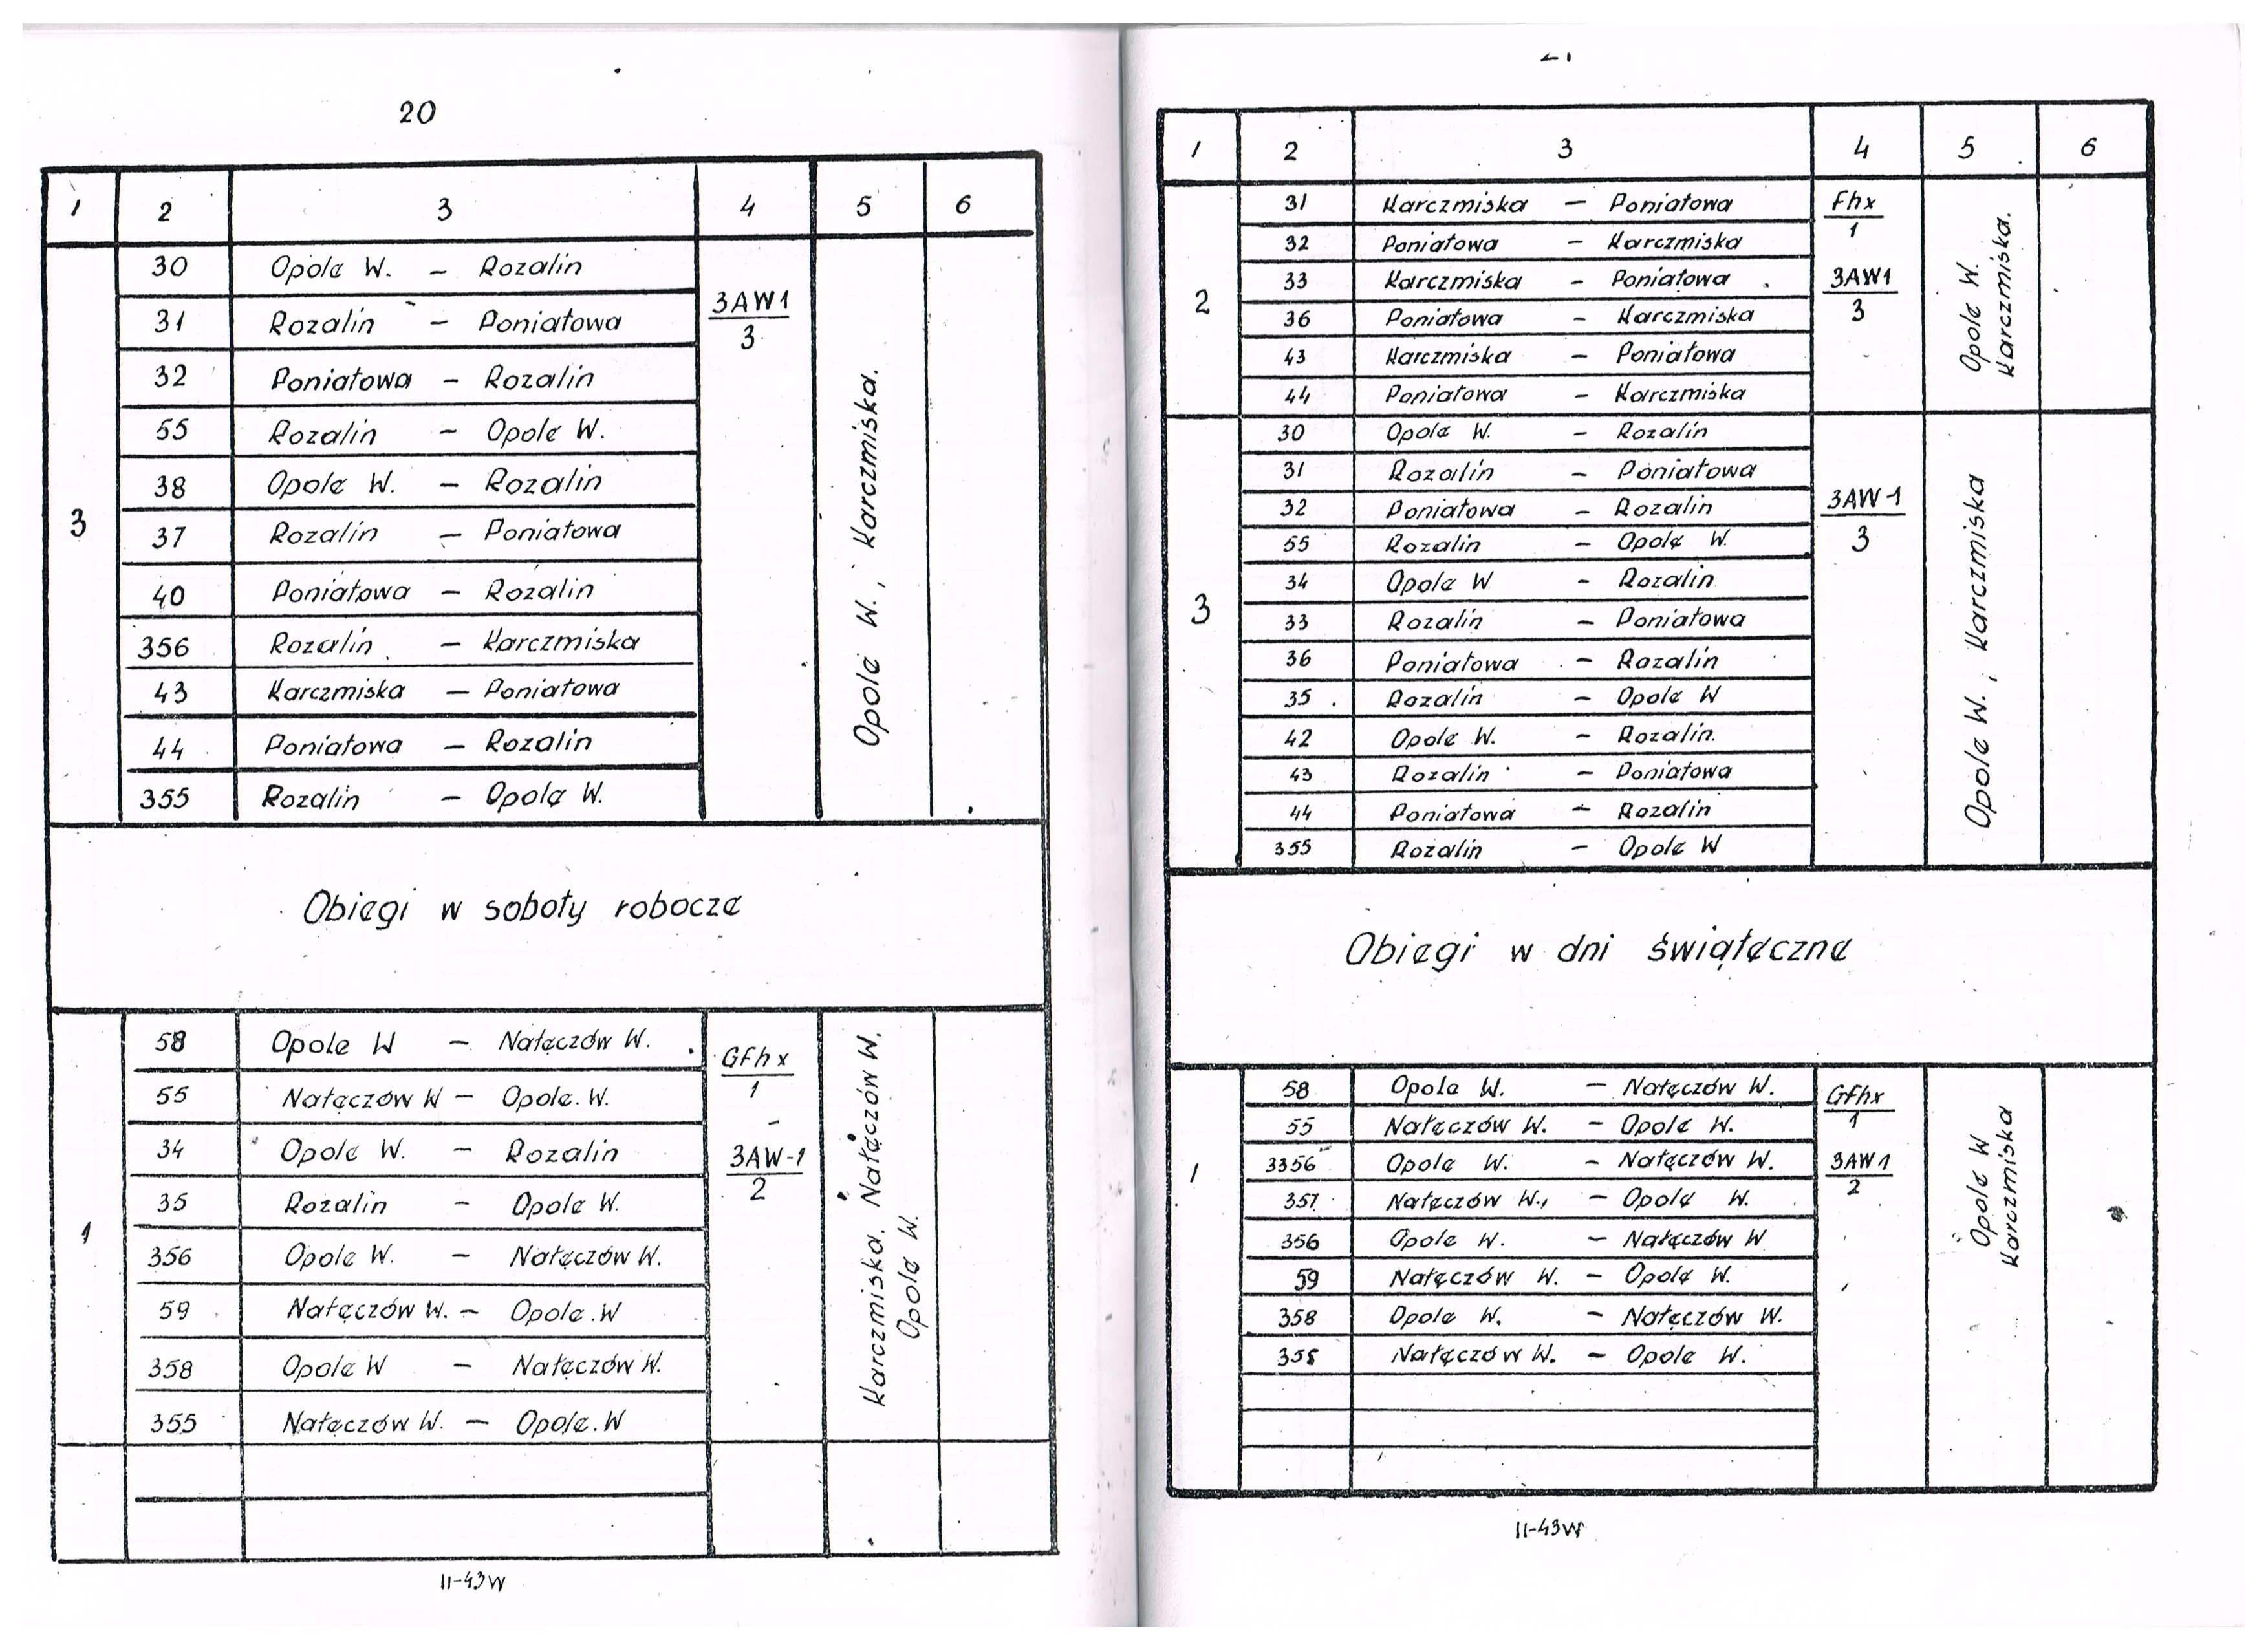 20
1 2 3 4 5 6
3
30 Opole W. – Rozalin
31 Rozalin – Poniatowa
32 Poniatowa – Rozalin
55 Rozalin – Opole W.
38 Opole W. – Rozalin
37 Rozalin – Poniatowa
40 Poniatowa – Rozalin
356 Rozalin – Karczmiska
43 Karczmiska – Poniatowa
44 Poniatowa – Rozalin
355 Rozalin – Opole W.
3AW1
3
Opole W., Karczmiska.
Obiegi w soboty robocze
1
58 Opole W – Nałęczów W.
55 Nałęczów W – Opole. W.
34 Opole W. – Rozalin
35 Rozalin – Opole W.
356 Opole W. – Nałęczów W.
59 Nałęczów W. – Opole .W
358 Opole W – Nałęczów W.
355 Nałęczów W. – Opole. W
GFhx
1
3AW-1
2
Karczmiska, Nałęczów W,
Opole W.
II-43W
1 2 3 4 5 6
2
31 Karczmiska – Poniatowa
32 Poniatowa – Karczmiska
33 Karczmiska – Poniatowa
36 Poniatowa – Karczmiska
43 Karczmiska – Poniatowa
44 Poniatowa – Karczmiska
Fhx
1
3AW1
3
Opole W.
Karczmiska.
3
30 Opole W. – Rozalin
31 Rozalin – Poniatowa
32 Poniatowa – Rozalin
55 Rozalin – Opole W.
34 Opole W – Rozalin
33 Rozalin – Poniatowa
36 Poniatowa – Rozalin
35 Rozalin – Opole W
42 Opole W. – Rozalin.
43 Rozalin – Poniatowa
44 Poniatowa – Rozalin
355 Rozalin – Opole W
3AW-1
3
Opole W., Karczmiska
Obiegi w dni świąteczne
1
58 Opole W. – Nałęczów W.
55 Nałęczów W. – Opole W.
3356 Opole W. – Nałęczów W.
357 Nałęczów W., – Opole W.
356 Opole W. – Nałęczów W
59 Nałęczów W. – Opole W.
358 Opole W. – Nałęczów W.
355 Nałęczów W. – Opole W.
Gfhx
1
3AW1
2
Opole W
Karczmiska
II-43W